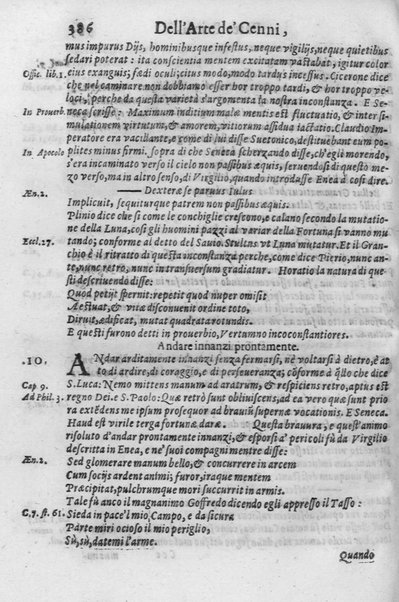 386 Dell'Arte de' Cenni,
mus impurus Dijs, hominibusque infestus, neque vigilijs, neque quietibus
sedari poterat: ita conscientia mentem excitatam vastabat, igitur color
Offic. lib. 1. cius exanguis; fœdi oculi; citus modo, modo tardus incessus. Cicerone dice
che nel caminare non dobbiamo esser hor troppo tardi, & hor troppo ve-
loci, perche da questa varietà s'argomenta la nostra inconstanza. E Se-
In Prouerb. neca scrisse: Maximum inditium malæ mentis est fluctuatio, & inter si-
mulationem virtutum, & amorem, vitiorum assidua iactatio. Claudio Im-
peratore era vacillante, e come di lui disse Suetonico, destituebant eum po-
In Apocolo plites minus firmi. sopra di che Seneca scherzando disse, ch'egli morendo,
s'era incaminato verso il cielo non passibus æquis, seruendosi di questo me
zo verso, ma in altro senso, di Virgilio, quando introdusse Enea à così dire.
Æn. 2. Dexteræ se paruus Iulus
Implicuit, sequiturque patrem non passibus æquis.
Plinio dice che sì come le conchiglie crescono, e calano secondo la mutatio-
ne della Luna, così gli huomini pazzi al variar della Fortuna si vanno mu
Eccl. 27. tando; conforme al detto del Sauio. Stultus vt Luna mutatur. Et il Gran-
chio è il ritratto di questa inconstanza perche, come dice Pierio, nunc an-
te, nunc retro, nunc in transuersum gradiatur. Horatio la natura di que-
sti descriuendo disse:
Quod petijt spernit: repetit quod nuper omisit
Aestuat, & vita disconuenit ordine toto,
Diruit, ædificat, mutat quadrata rotundis.
E questi furono detti in prouerbio, Vertumno inconstantiores.
Andare innanzi prontamente.
.10. ANdar arditamente innanzi senza fermarsi, nè voltarsi à dietro, è at
to di ardire, di coraggio, e di perseueranza; cōforme à q̃llo che dice
Cap 9. S. Luca: Nemo mittens manum ad aratrum, & respiciens retro, aptus est
Ad Phil. 3. regno Dei. e S. Paolo: Quæ retrò sunt obliuiscens, ad ea vero quæ sunt prio
ra extēdens me ipsum prosequor ad brauiũ supernæ vocationis. E Seneca.
Haud est virile terga fortunæ daræ. Questa brauura, e quest'animo
risoluto d'andar prontamente innanzi, & esporsi a' pericoli fù da Virgilio
descritta in Enea, e ne' suoi compagni mentre disse:
Æn. 2. Sed glomerare manum bello, & concurrere in arcem
Cum socijs ardent animi; furor, iraque mentem
Præcipitat, pulchrumque mori succurrit in armis.
Tale fù anco il magnanimo Goffredo dicendo egli appresso il Tasso:
C. 7. st. 61. Sieda in pace'l mio Campo, e da sicura
Parte miri ocioso il mio periglio,
Sù, sù, datemi l'arme.
Quando